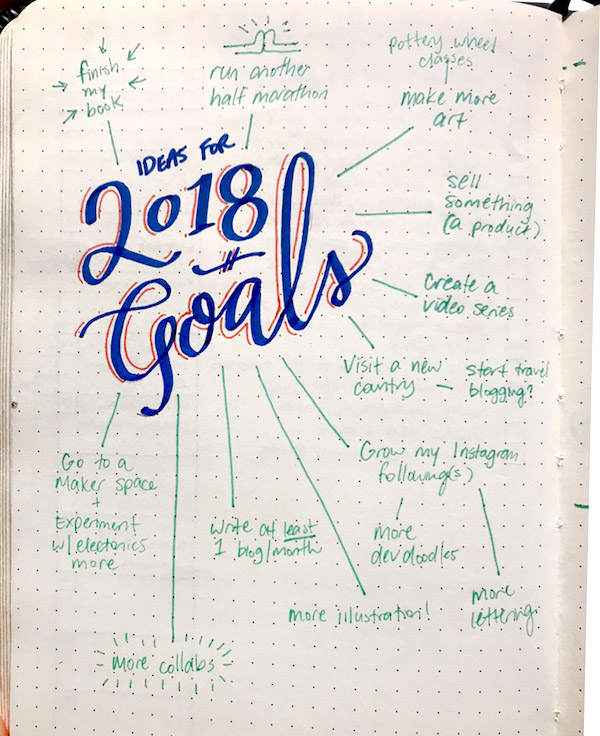 finish
my
book
run another
half marathon
pottery wheel
classes
make more
art
IDEAS FOR
2018
Goals
sell
something
(a product)
Create a
video series
Visit a new
country
start travel
blogging?
Grow my Instagram
following(s)
more
devdoodles
more
lettering
Go to a
Maker space
+
Experiment
w/electonics
more
Write at least
1 blog/month
more illustration!
more collabs